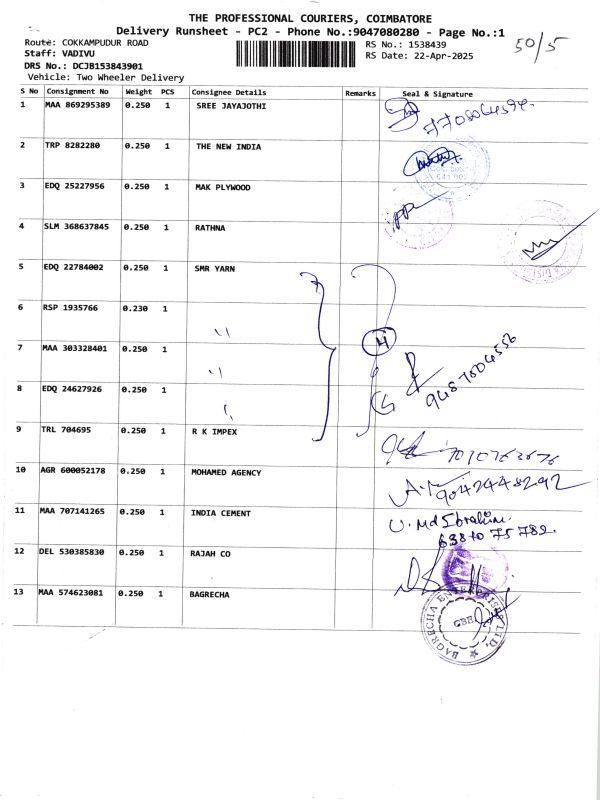 THE PROFESSIONAL COURIERS, COIMBATORE
Delivery Runsheet - PC2 - Phone No.:9047080280 - Page No.:1
Route: COKKAMPUDUR ROAD
Staff: VADIVU
DRS No.: DCJB153843901
Vehicle: Two Wheeler Delivery
RS No.: 1538439
RS Date: 22-Apr-2025
50/5
S No Consignment No Weight PCS Consignee Details Remarks Seal & Signature
1 MAA 869295389 0.250 1 SREE JAYAJOTHI
2 TRP 8282280 0.250 1 THE NEW INDIA
3 EDQ 25227956 0.250 1 MAK PLYWOOD
4 SLM 368637845 0.250 1 RATHNA
5 EDQ 22784002 0.250 1 SMR YARN
6 RSP 1935766 0.230 1 "
7 MAA 303328401 0.250 1 "
4
8 EDQ 24627926 0.250 1 "
9487504556
9 TRL 704695 0.250 1 R K IMPEX
7010762676
10 AGR 600052178 0.250 1 MOHAMED AGENCY
9042448292
11 MAA 707141265 0.250 1 INDIA CEMENT U. Md Ibrahim.
63810 75 782.
12 DEL 530385830 0.250 1 RAJAH CO
13 MAA 574623081 0.250 1 BAGRECHA
BAGRECHA ENTERPRISES LTD.
CBE